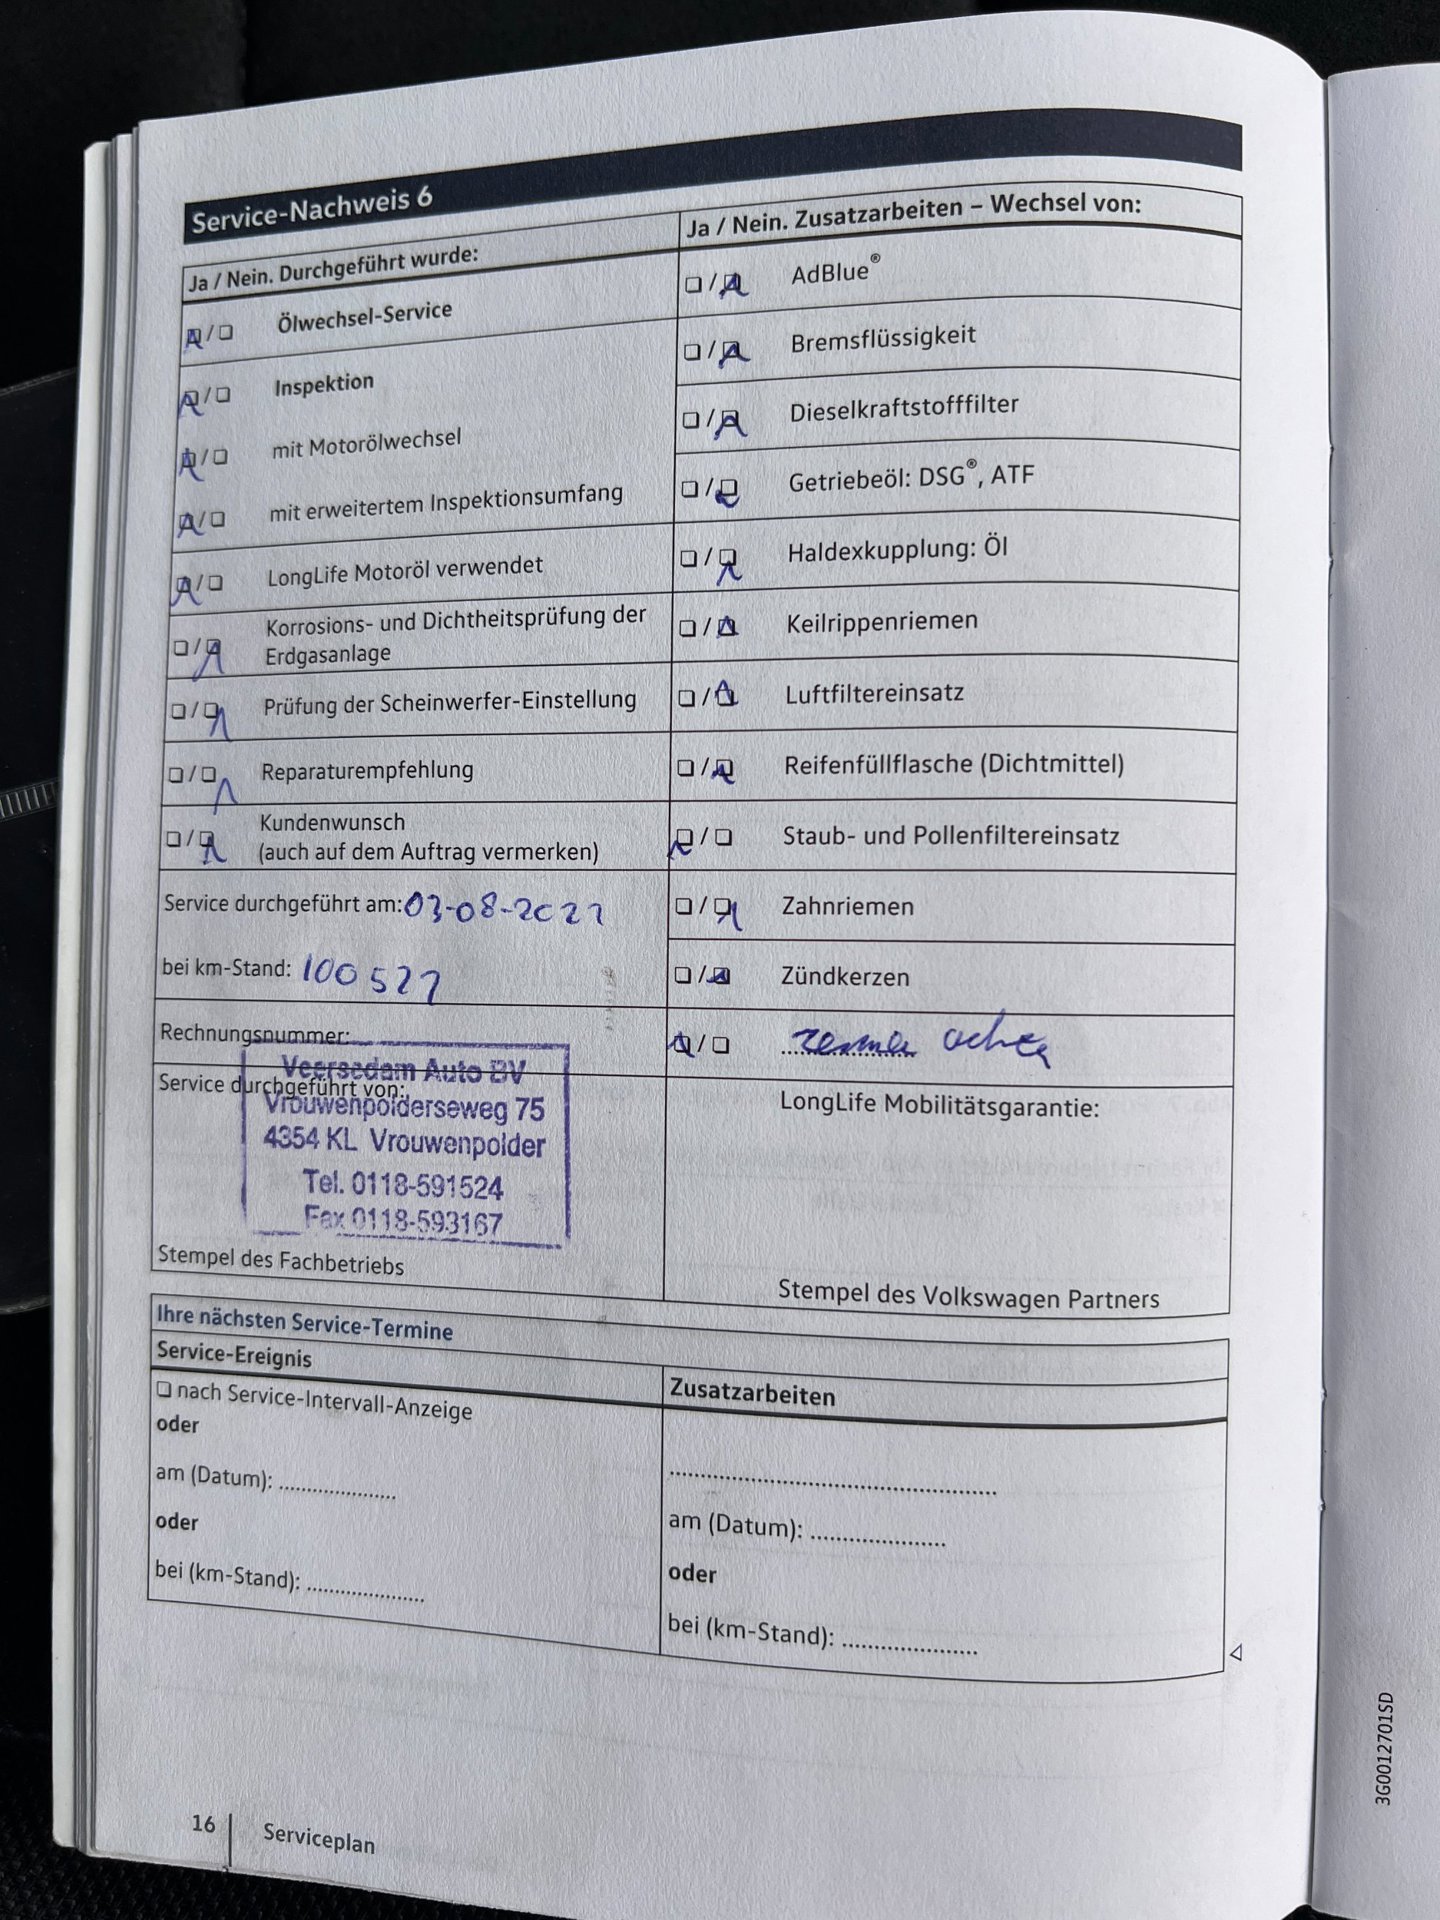 Service-Nachweis 6
Ja / Nein. Durchgeführt wurde:
Ölwechsel-Service
Inspektion
mit Motorölwechsel
mit erweitertem Inspektionsumfang
LongLife Motoröl verwendet
Korrosions- und Dichtheitsprüfung der
Erdgasanlage
Prüfung der Scheinwerfer-Einstellung
Reparaturempfehlung
Kundenwunsch
(auch auf dem Auftrag vermerken)
Service durchgeführt am:
bei km-Stand:
Rechnungsnummer:
Service durchgeführt von:
Veersedam Auto BV
Vrouwenpolderseweg 75
4354 KL Vrouwenpolder
Tel. 0118-591524
Fax 0118-593167
Stempel des Fachbetriebs
Ja / Nein. Zusatzarbeiten – Wechsel von:
AdBlue®
Bremsflüssigkeit
Dieselkraftstofffilter
Getriebeöl: DSG®, ATF
Haldexkupplung: Öl
Keilrippenriemen
Luftfiltereinsatz
Reifenfüllflasche (Dichtmittel)
Staub- und Pollenfiltereinsatz
Zahnriemen
Zündkerzen
LongLife Mobilitätsgarantie:
Stempel des Volkswagen Partners
Ihre nächsten Service-Termine
Service-Ereignis
nach Service-Intervall-Anzeige
oder
am (Datum): ....................
oder
bei (km-Stand): ....................
Zusatzarbeiten
am (Datum): ....................
oder
bei (km-Stand): ....................
16 Serviceplan
3G0012701SD